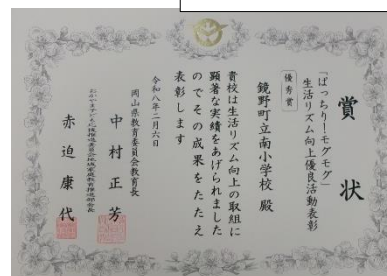 賞状
「ぱっちり!モグモグ」
生活リズム向上優良活動表彰
優秀賞
鏡野町立南小学校 殿
貴校は生活リズム向上の取組に
顕著な実績をあげられました
のでその成果をたたえ
表彰します
令和八年二月六日
岡山県教育委員会教育長
中村正芳
おかやま子ども応援推進委員会地域家庭教育推進部会長
赤迫康代